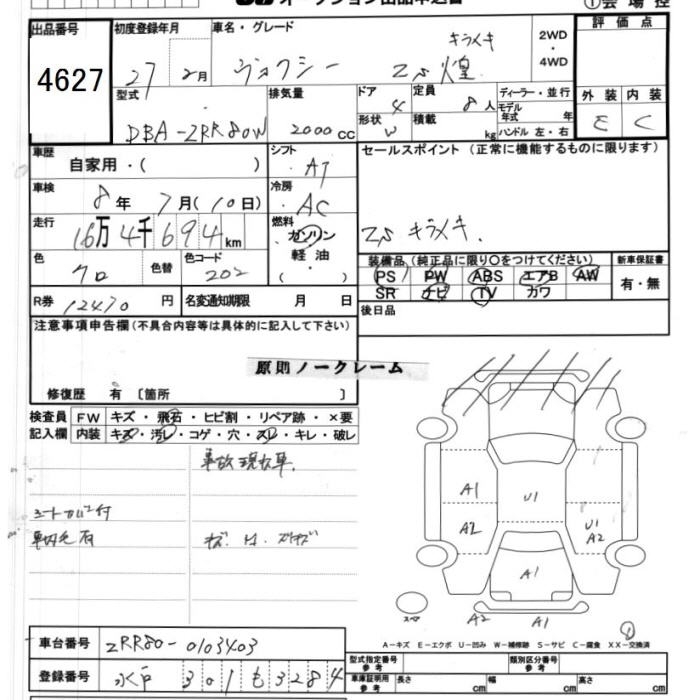 オークション出品申込書 ①会場控
出品番号 4627
初度登録年月 27 2月
車名・グレード ヴォクシー ZS 煌 キラメキ
2WD・4WD
評価点
外装 E 内装 C
型式 DBA-ZRR80W
排気量 2000cc
ドア 4
形状 W
定員 8人
積載 kg
ディーラー・並行
モデル年式 年
ハンドル 左・右
車歴 自家用・( )
シフト AT
セールスポイント (正常に機能するものに限ります)
車検 8年 7月(10日)
冷房 AC
走行 16万4千694km
燃料 ガソリン 軽油 ( ・ )
ZS キラメキ.
色 クロ 色替 色コード 202
装備品 (純正品に限り○をつけてください) 新車保証書
PS PW ABS エアB AW 有・無
SR ナビ TV カワ
R券 12470円 名変通知期限 月 日
後日品
注意事項申告欄(不具合内容等は具体的に記入して下さい)
原則ノークレーム
修復歴 有 〔箇所 〕
検査員 FW キズ・飛石・ヒビ割・リペア跡・×要
記入欄 内装 キズ・汚レ・コゲ・穴・スレ・キレ・破レ
事故現状車.
シートカバー付
A1 U1
A2 U1 A2
A1
スペア A2 A1
A-キズ E-エクボ U-凹み W-補修跡 S-サビ C-腐食 XX-交換済
車台番号 ZRR80-0103403
型式指定番号 参考 類別区分番号 参考
登録番号 水戸 301 も 3284
車庫証明用 参考 長さ cm 幅 cm 高さ cm